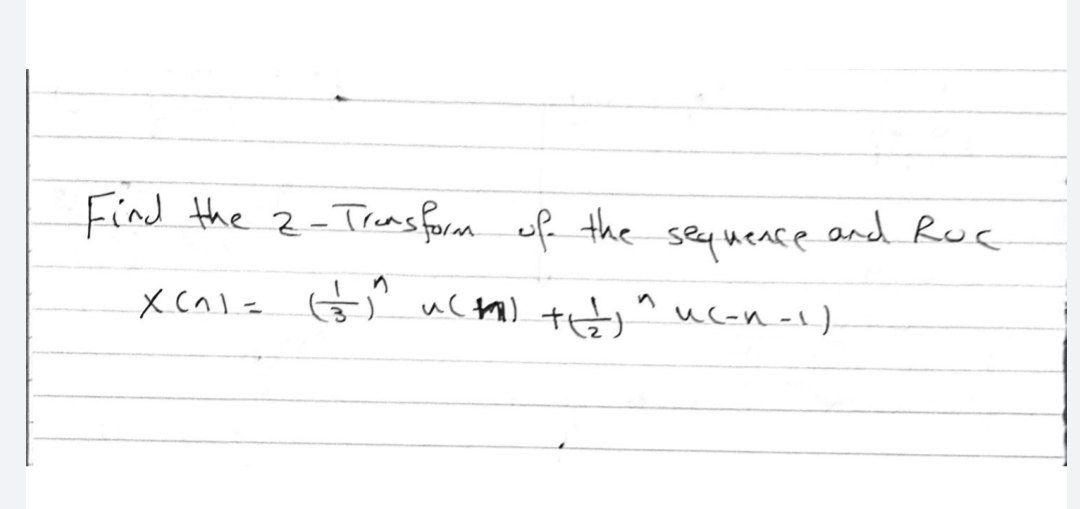 Find the z-Transform of the sequence and ROC
x(n) = (1/3)^n u(n) + (1/2)^n u(-n-1)